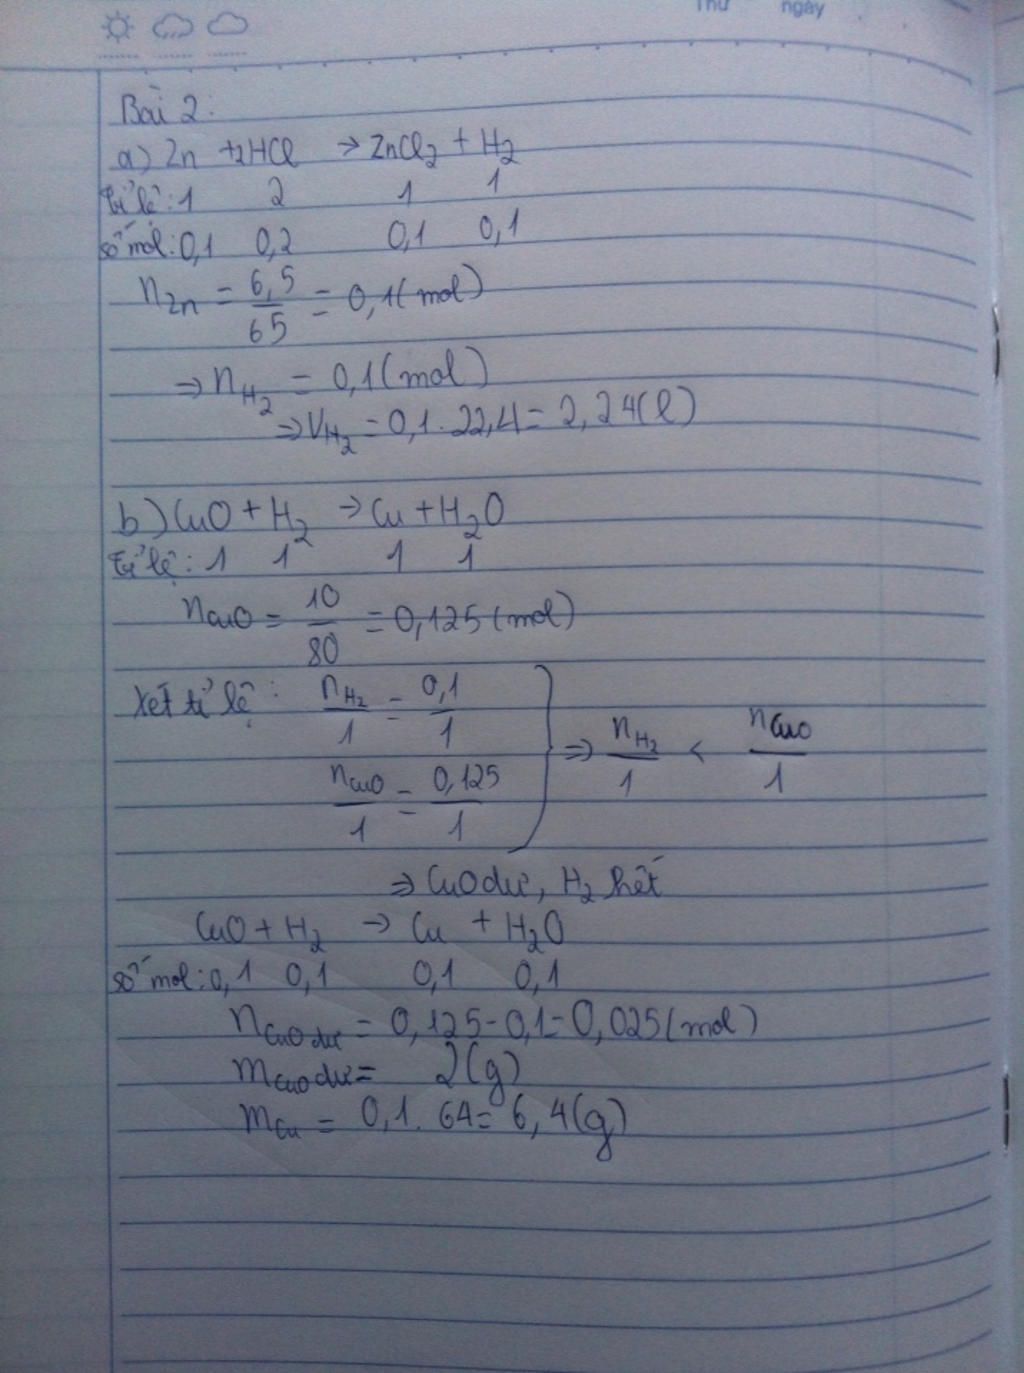 Thứ ngày
Bài 2:
a) Zn +2HCl → ZnCl₂ + H₂
Tỉ lệ: 1 2 1 1
số mol: 0,1 0,2 0,1 0,1
n_Zn = 6,5/65 = 0,1 (mol)
⇒ n_H₂ = 0,1 (mol)
⇒ V_H₂ = 0,1 . 22,4 = 2,24 (l)
b) CuO + H₂ → Cu + H₂O
Tỉ lệ: 1 1 1 1
n_CuO = 10/80 = 0,125 (mol)
Xét tỉ lệ: n_H₂/1 = 0,1/1
n_CuO/1 = 0,125/1 } ⇒ n_H₂/1 < n_CuO/1
⇒ CuO dư, H₂ hết
CuO + H₂ → Cu + H₂O
số mol: 0,1 0,1 0,1 0,1
n_CuO dư = 0,125 - 0,1 = 0,025 (mol)
m_CuO dư = 2 (g)
m_Cu = 0,1 . 64 = 6,4 (g)